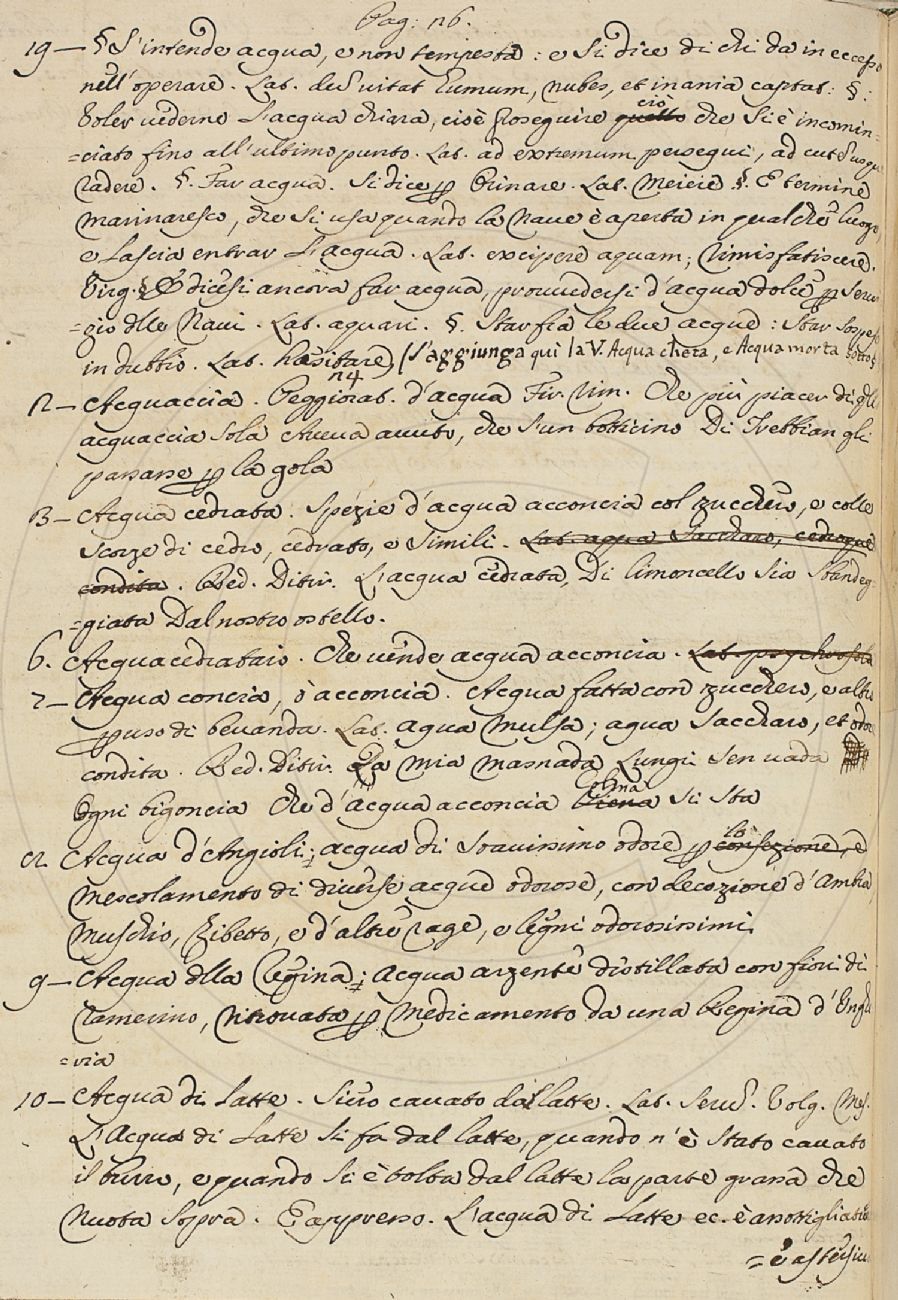 Pag: 126.
19 — § S'intende acqua, e non tempesta: e si dice di chi dà in eccesso
nell'operare. Lat. fumum, nubes, et inania captat: §:
Voler vederne l'acqua chiara, cioè proseguire quello ciò che si è incomin-
=ciato fino all'ultimo punto. Lat. ad extremum persequi, ad cutem usque
radere. §. Far acqua. Si dice p Orinare. Lat. Meiere §. È termine
marinaresco, che si usa quando la Nave è aperta in qualche luogo,
e lascia entrar l'acqua. Lat. excipere aquam; rimis fatiscere.
Virg. § E dicesi ancora far acqua, provvedersi d'acqua dolce p servi-
=gio dlle Navi. Lat. aquari. §. Star fra le due acque: Star sospeso
in dubbio. Lat. hæsitare (S'aggiunga quì la V. Acqua cheta, e Acqua morta sotto
n4
12 — Acquaccia. Peggiorat. d'acqua Fir. rim. Che più piacer di qlla
acquaccia sola Aveva avuto, che s'un botticino Di Trebbian gli
passasse p la gola
13 — Acqua cedrata. Spézie d'acqua acconcia col zucchero, e colle
scorze di cedro, cedrato, e simili. Lat. aqua Saccharo, cedroque
condita. Red. Ditir. L'acqua cedrata, Di limoncello Sia sbandeg-
=giata Dal nostro ostello.
6. Acquacedrataio. Che vende acqua acconcia. Lat.
7 — Acqua concia, ò acconcia. Acqua fatta con zucchero, e altro
p uso di bevanda. Lat. aqua mulsa; aqua Saccharo, et odore
condita. Red. Ditir. La mia masnada Lungi sen vada
Ogni bigoncia Che d'acqua acconcia Piena Colma si sta
Acqua d'Angioli; acqua di soavissimo odore p lo confezione, e
mescolamento di diverse acque odorose, con decozione d'Ambra,
Muschio, Zibetto, e d'altre rage, e legni odorosissimi.
9 — Acqua dlla Regina; Acqua arzente distillata con fiori di
ramerino, ritrovata p medicamento da una Regina d'Unghe-
=ria
10 — Acqua di latte. Siero cavato dal latte. Lat. Serum. Volg. Mes.
L'Acqua di latte si fa dal latte, quando n'è stato cavato
il burro, e quando si è tolta dal latte la parte grassa che
nuota sopra. E appresso. L'acqua di latte ec. è assottigliativa
= è astersiva